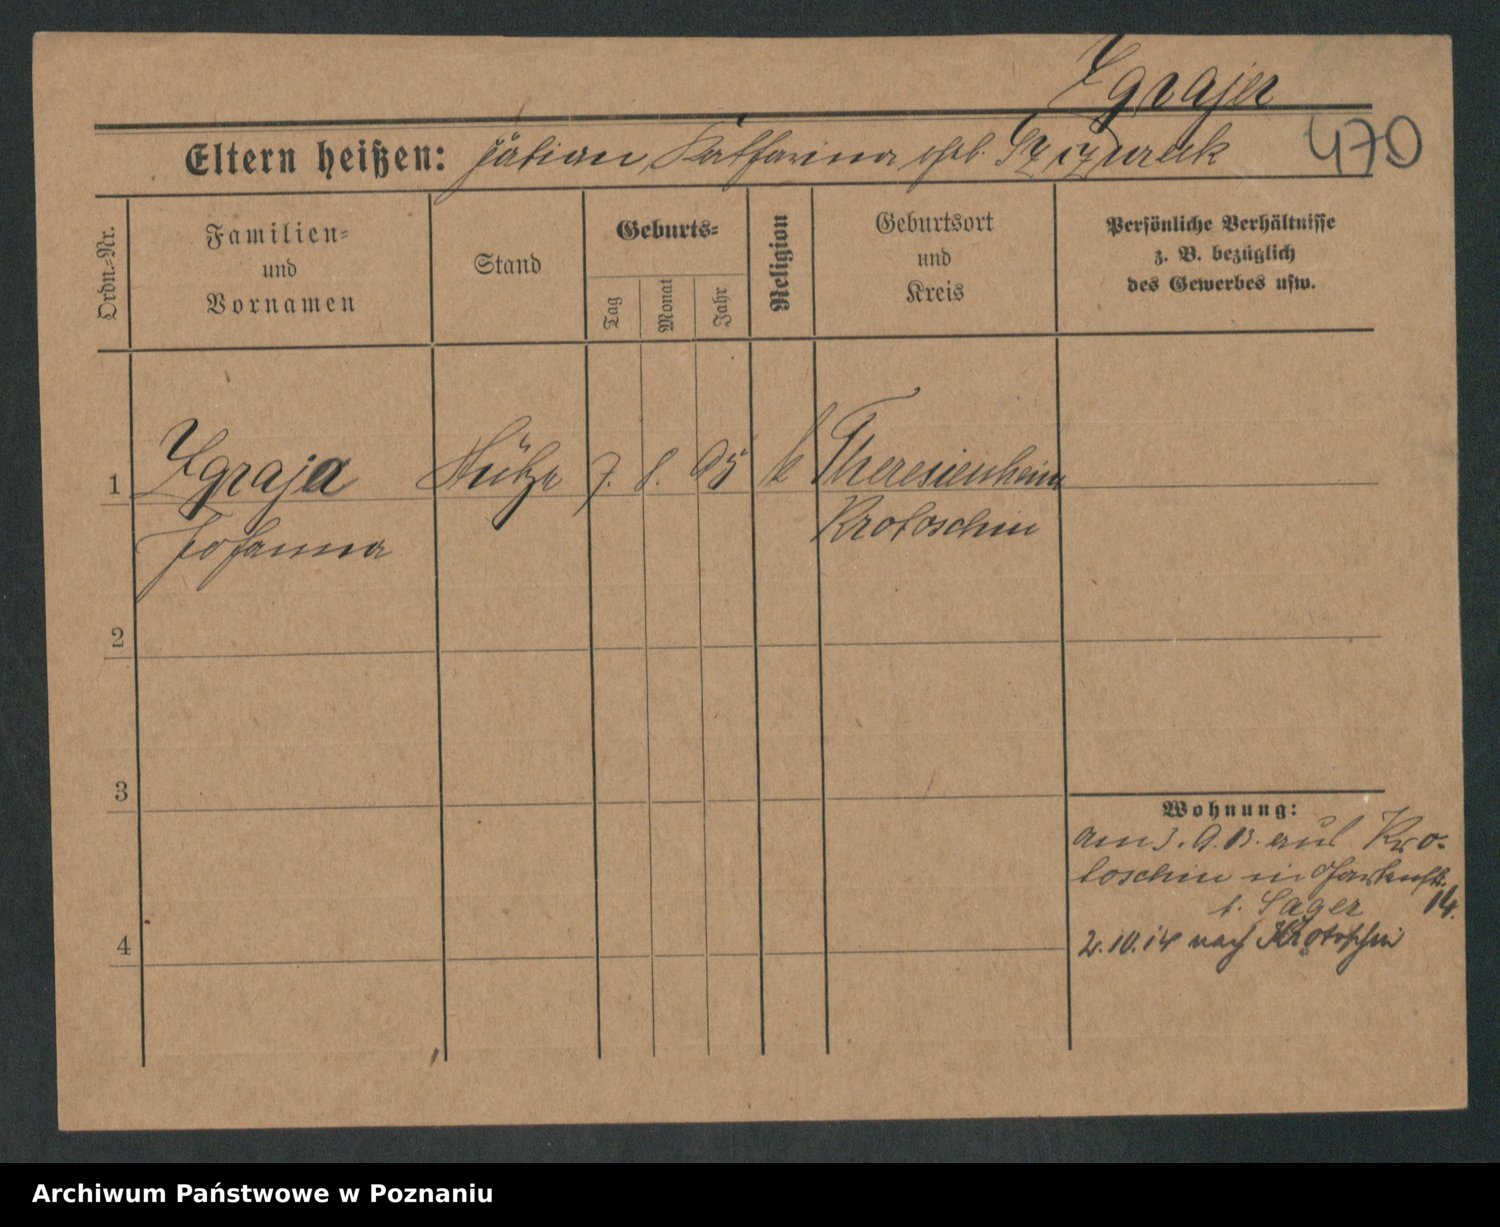 Zgrajer
470
Eltern heißen: Katharina geb. Szczurek
Ordn.-Nr.
Familien-
und
Vornamen
Stand
Geburts-
Tag
Monat
Jahr
Religion
Geburtsort
und
Kreis
Persönliche Verhältnisse
z. B. bezüglich
des Gewerbes usw.
1 Zgraja Stütze 7. 8. 95 k Theresienheim
Johanna Krotoschin
2
3
4
Wohnung:
am 3. 9. 13. aus Kro-
toschin in Gartenstr.
b. Sager 14.
2.10.14 nach Krotoschin
Archiwum Państwowe w Poznaniu